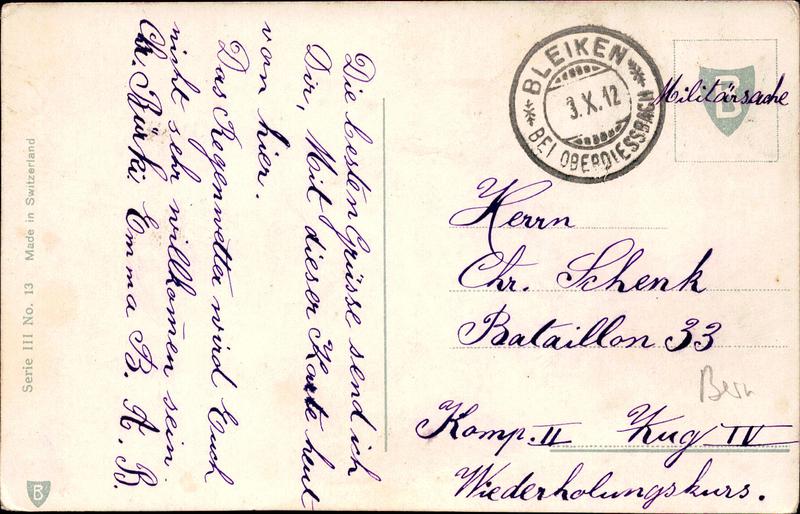 Die besten Grüsse send ich
Dir, Mit dieser Karte heut
von hier.
Das Regenwetter wird Euch
nicht sehr willkom̄en sein.
Chr. Bürki. Emma B. A. B.
BLEIKEN
3.X.12
BEI OBERDIESSBACH
B
Militärsache
Herrn
Chr. Schenk
Bataillon 33
Bern
Komp. II Zug IV
Wiederholungskurs.
Serie III No. 13 Made in Switzerland
B